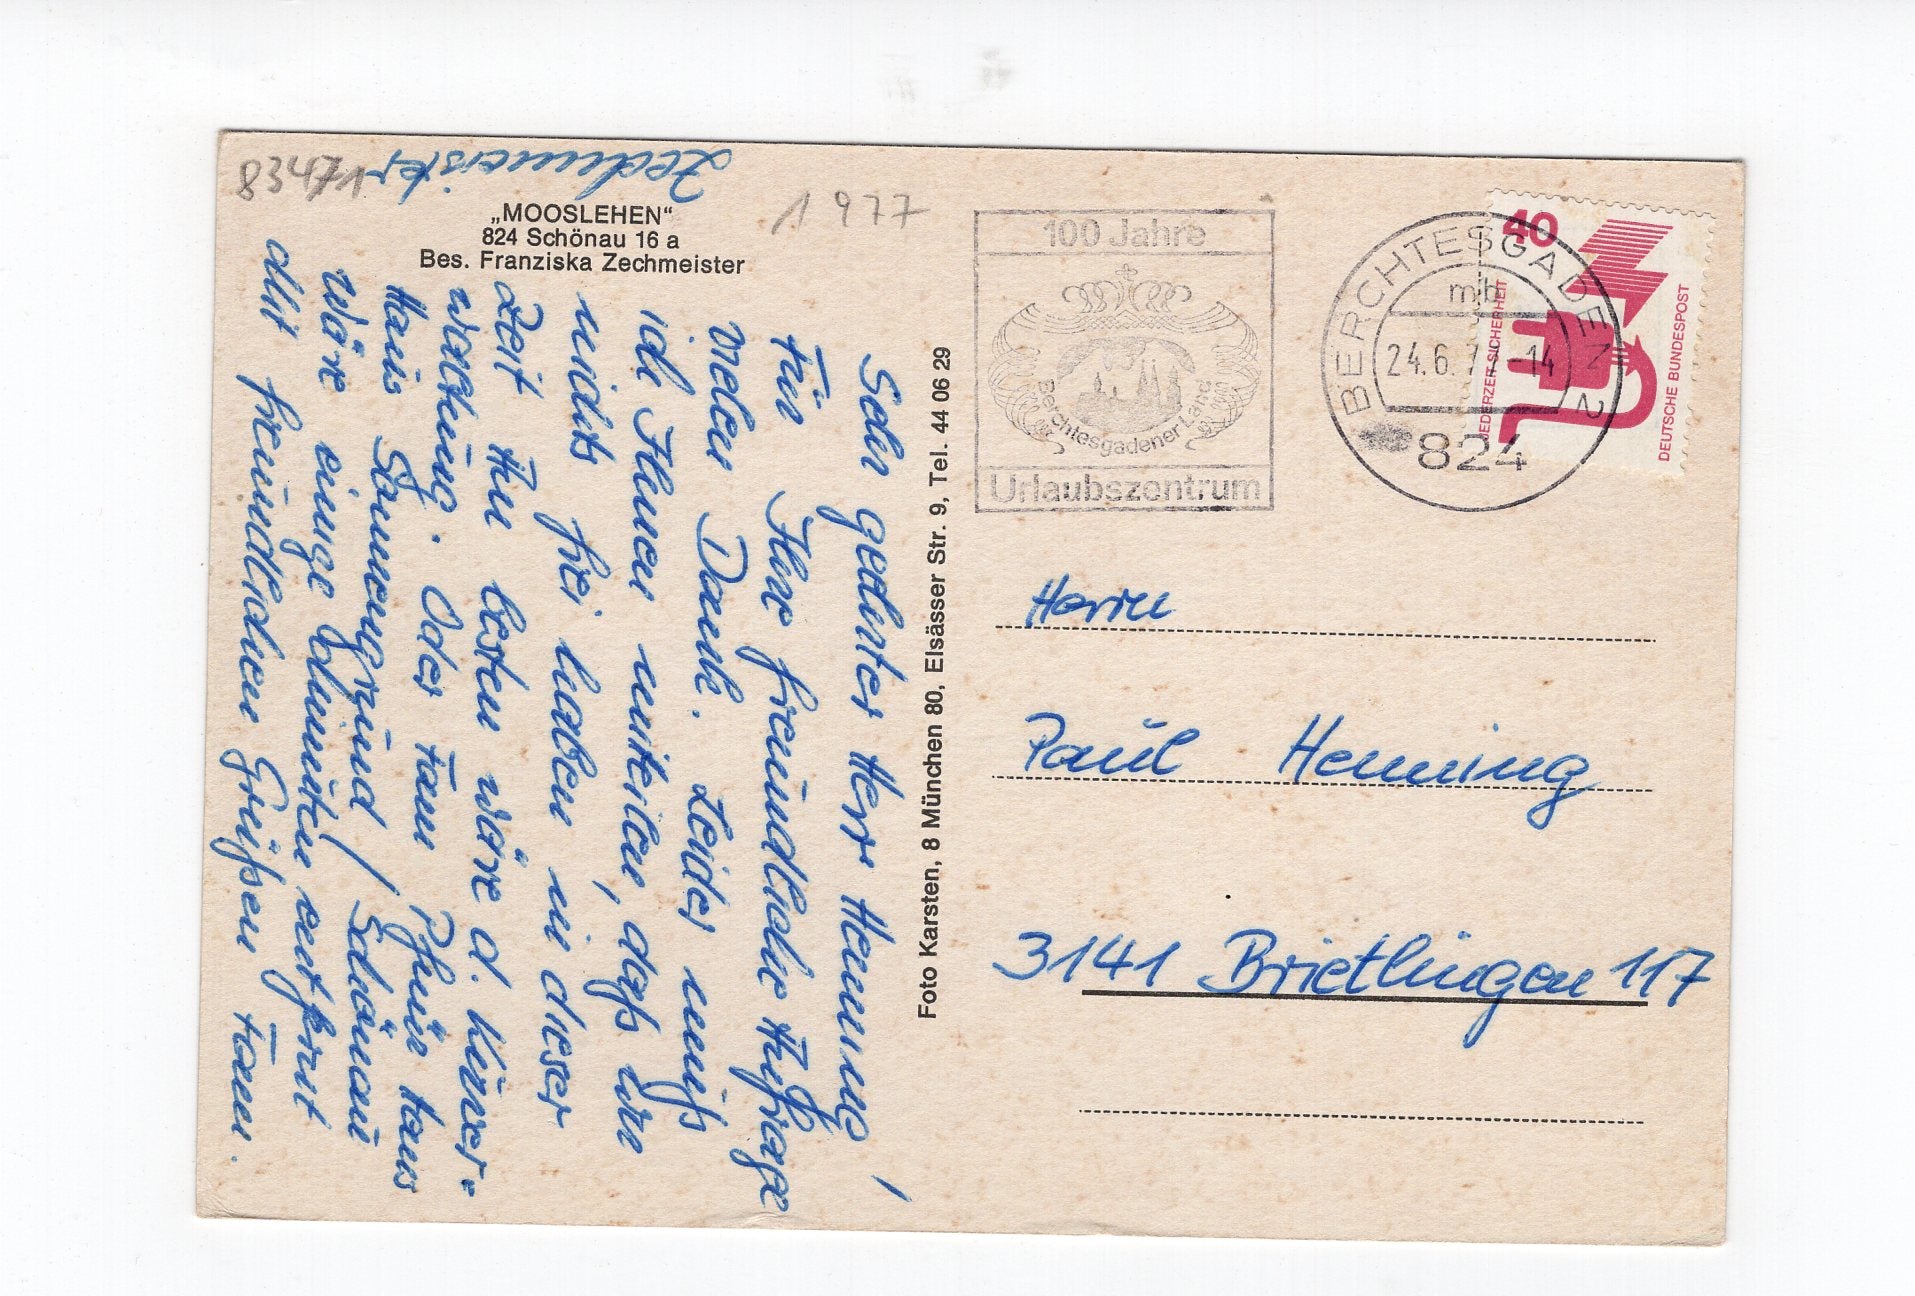 83471
Zechmeister
„MOOSLEHEN“
824 Schönau 16 a
Bes. Franziska Zechmeister
1977
Sehr geehrter Herr Henning!
Für Ihre freundliche Anfrage
vielen Dank. Leider muß
ich Ihnen mitteilen, daß wir
nichts frei haben in dieser
Zeit. Am besten wäre d. Kurver-
waltung. Oder Fam Pfnür Haus
Haus Sonnengrund / Schönau
wäre einige Minuten entfernt
Mit freundlichen Grüßen Fam.
Foto Karsten, 8 München 80, Elsässer Str. 9, Tel. 44 06 29
100 Jahre
Berchtesgadener Land
Urlaubszentrum
BERCHTESGADEN 2
mb
24.6.77-14
824
40
JEDERZEIT SICHERHEIT
DEUTSCHE BUNDESPOST
Herrn
Paul Henning
3141 Brietlingen 117